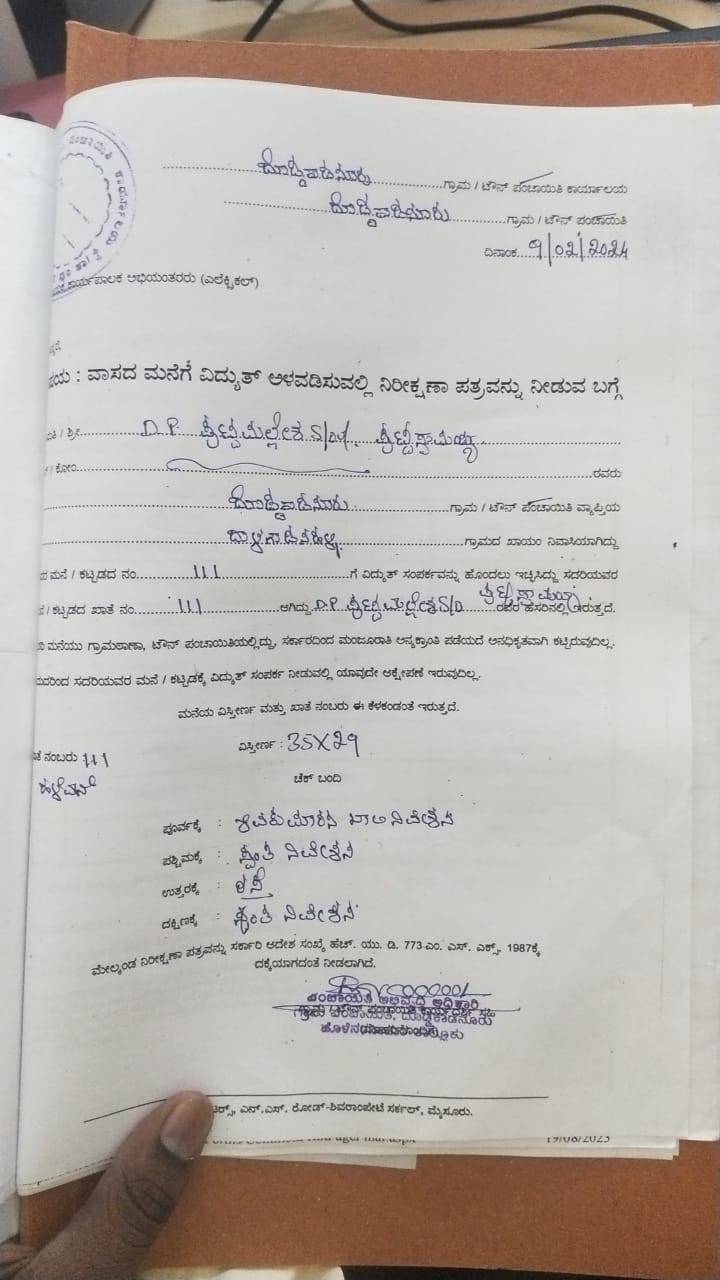 ದೊಡ್ಡಕಾಡನೂರು ಗ್ರಾಮ / ಟೌನ್ ಪಂಚಾಯಿತಿ ಕಾರ್ಯಾಲಯ
ದೊಡ್ಡಕಾಡನೂರು ಗ್ರಾಮ / ಟೌನ್ ಪಂಚಾಯಿತಿ
ದಿನಾಂಕ 9/02/2024
ಕಾರ್ಯಪಾಲಕ ಅಭಿಯಂತರರು (ಎಲೆಕ್ಟ್ರಿಕಲ್)
ವಾಸದ ಮನೆಗೆ ವಿದ್ಯುತ್ ಅಳವಡಿಸುವಲ್ಲಿ ನಿರೀಕ್ಷಣಾ ಪತ್ರವನ್ನು ನೀಡುವ ಬಗ್ಗೆ
/ ಶ್ರೀ D.P. ಪುಟ್ಟಮಲ್ಲೇಶ S/O ಪುಟ್ಟಸ್ವಾಮಯ್ಯ
/ ಕೋಂ ರವರು
ದೊಡ್ಡಕಾಡನೂರು ಗ್ರಾಮ / ಟೌನ್ ಪಂಚಾಯಿತಿ ವ್ಯಾಪ್ತಿಯ
ಗ್ರಾಮದ ಖಾಯಂ ನಿವಾಸಿಯಾಗಿದ್ದು
ಮನೆ / ಕಟ್ಟಡದ ನಂ. 111 ಗೆ ವಿದ್ಯುತ್ ಸಂಪರ್ಕವನ್ನು ಹೊಂದಲು ಇಚ್ಛಿಸಿದ್ದು ಸದರಿಯವರ
/ ಕಟ್ಟಡದ ಖಾತೆ ನಂ. 111 ಆಗಿದ್ದು D.P. ಪುಟ್ಟಮಲ್ಲೇಶ S/O ಪುಟ್ಟಸ್ವಾಮಯ್ಯ ರವರ ಹೆಸರಿನಲ್ಲಿ ಇರುತ್ತದೆ.
ಮನೆಯು ಗ್ರಾಮಠಾಣಾ, ಟೌನ್ ಪಂಚಾಯಿತಿಯಲ್ಲಿದ್ದು, ಸರ್ಕಾರದಿಂದ ಮಂಜೂರಾತಿ ಅನ್ಯಕ್ರಾಂತಿ ಪಡೆಯದೆ ಅನಧಿಕೃತವಾಗಿ ಕಟ್ಟಿರುವುದಿಲ್ಲ.
ಸದರಿಯವರ ಮನೆ / ಕಟ್ಟಡಕ್ಕೆ ವಿದ್ಯುತ್ ಸಂಪರ್ಕ ನೀಡುವಲ್ಲಿ ಯಾವುದೇ ಆಕ್ಷೇಪಣೆ ಇರುವುದಿಲ್ಲ.
ಮನೆಯ ವಿಸ್ತೀರ್ಣ ಮತ್ತು ಖಾತೆ ನಂಬರು ಈ ಕೆಳಕಂಡಂತೆ ಇರುತ್ತದೆ.
ನಂಬರು 111 ವಿಸ್ತೀರ್ಣ : 35X29
ಚೆಕ್ ಬಂದಿ
ಪೂರ್ವಕ್ಕೆ : ಶಿವಕುಮಾರನ ಖಾಲಿ ನಿವೇಶನ
ಪಶ್ಚಿಮಕ್ಕೆ : ಸ್ವಂತ ನಿವೇಶನ
ಉತ್ತರಕ್ಕೆ : ರಸ್ತೆ
ದಕ್ಷಿಣಕ್ಕೆ : ಸ್ವಂತ ನಿವೇಶನ
ಮೇಲ್ಕಂಡ ನಿರೀಕ್ಷಣಾ ಪತ್ರವನ್ನು ಸರ್ಕಾರಿ ಆದೇಶ ಸಂಖ್ಯೆ ಹೆಚ್. ಯು. ಡಿ. 773 ಎಂ. ಎಸ್. ಎಕ್ಸ್. 1987ಕ್ಕೆ
ದಕ್ಕೆಯಾಗದಂತೆ ನೀಡಲಾಗಿದೆ.
ಪಂಚಾಯಿತಿ ಅಭಿವೃದ್ಧಿ ಅಧಿಕಾರಿ
ಎನ್.ಎಸ್. ರೋಡ್-ಶಿವರಾಂಪೇಟೆ ಸರ್ಕಲ್, ಮೈಸೂರು.
19/08/2023